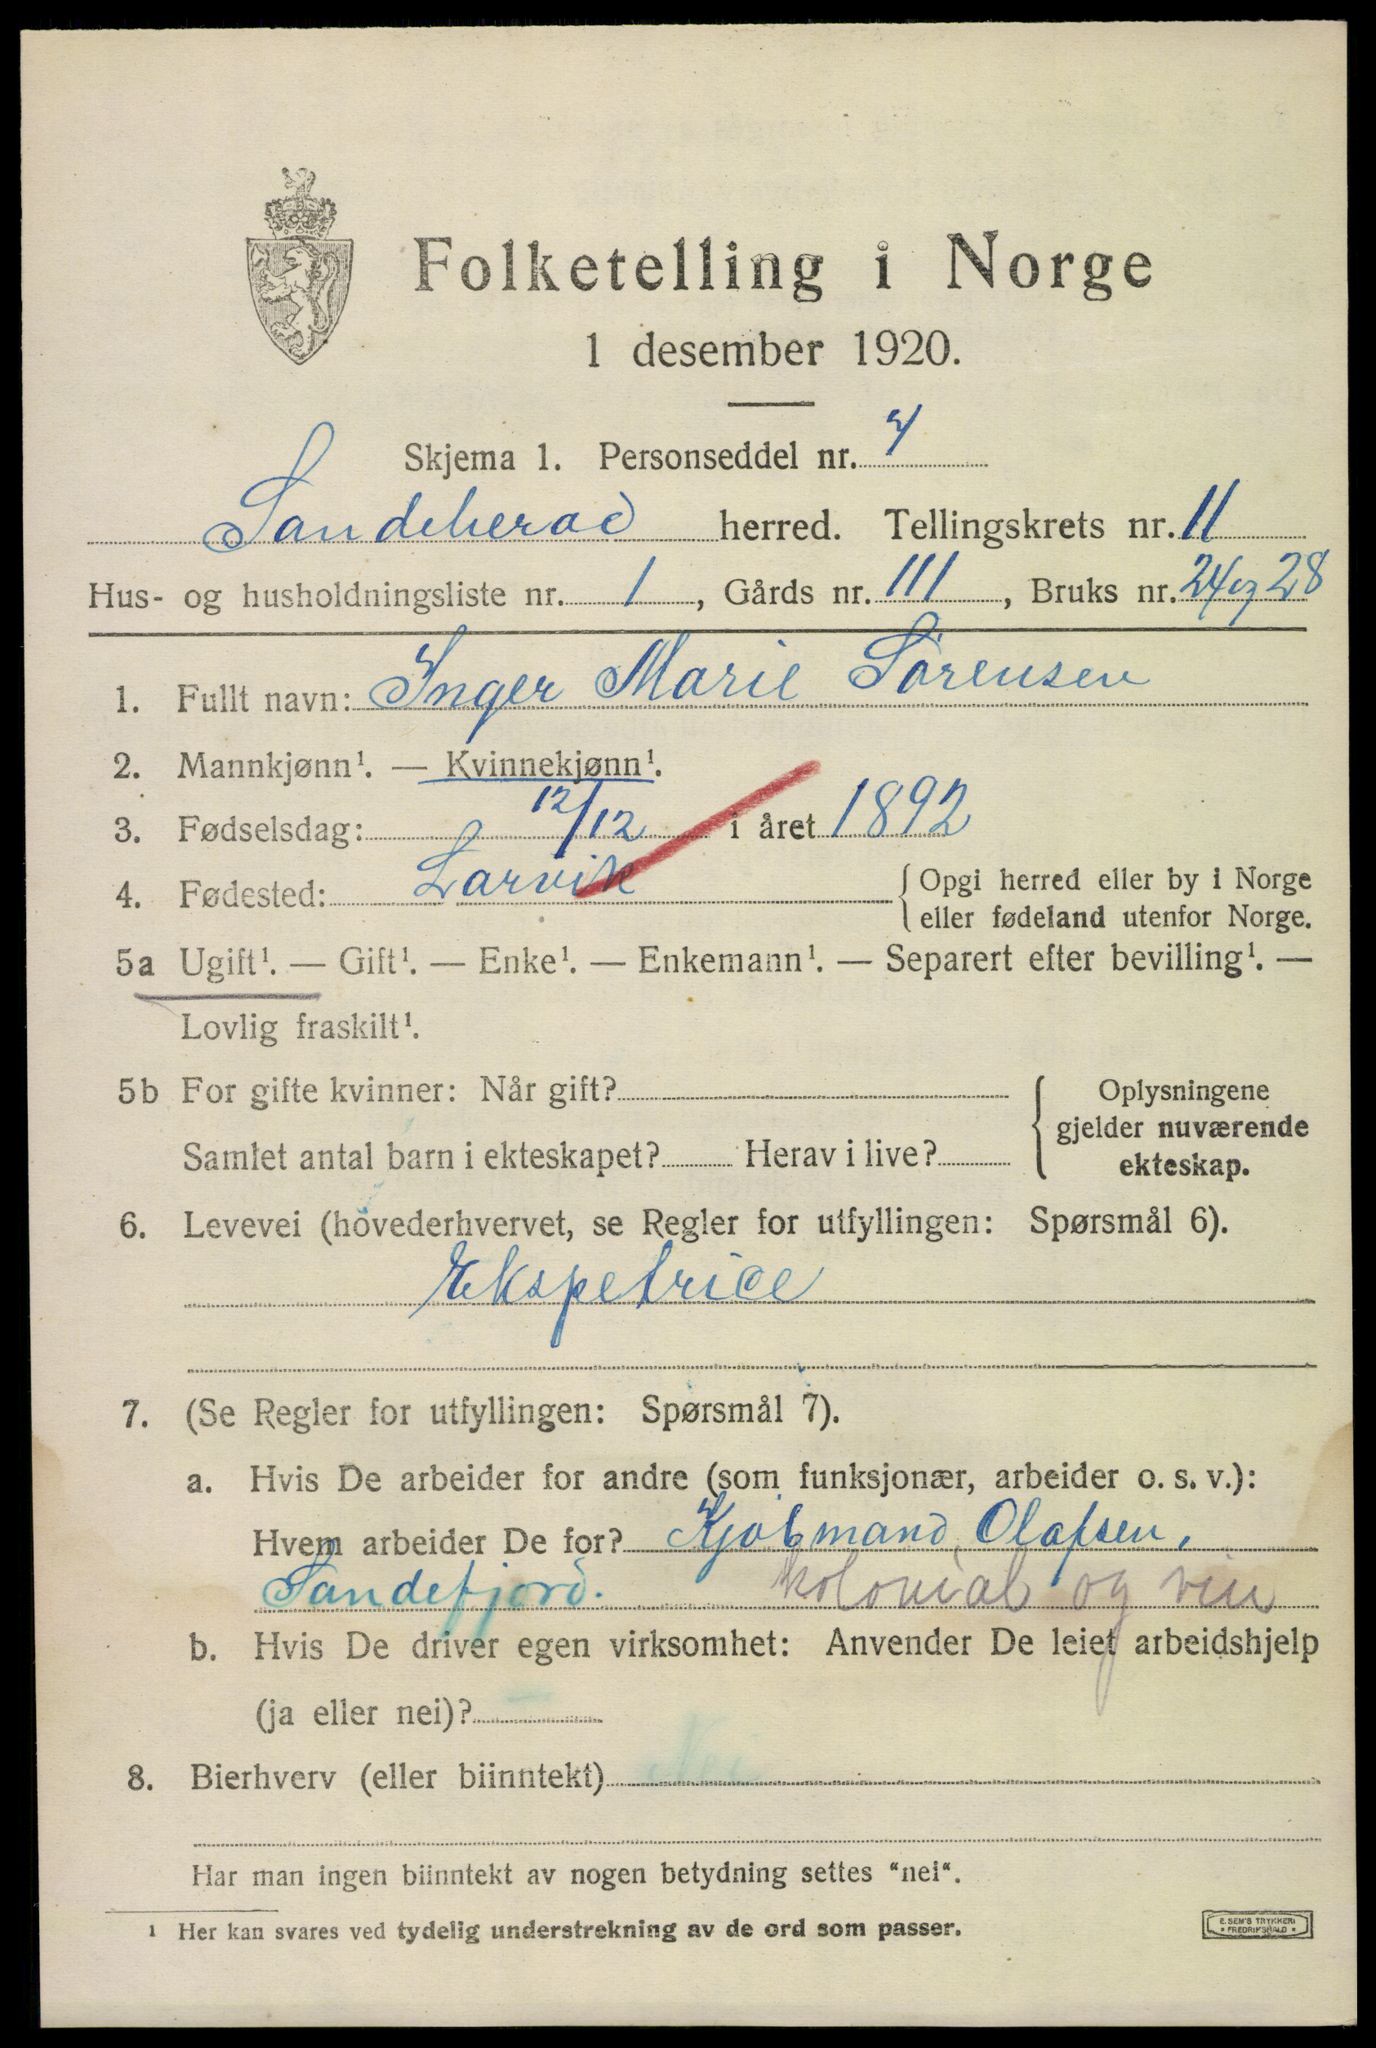 Folketelling i Norge
1 desember 1920.
Skjema 1. Personseddel nr. 4
Sandeherad herred. Tellingskrets nr. 11
Hus- og husholdningsliste nr. 1, Gårds nr. 111, Bruks nr. 24 og 28
1. Fullt navn: Inger Marie Sörensen
2. Mannkjønn¹. — Kvinnekjønn¹.
3. Fødselsdag: 12/12 i året 1892
4. Fødested: Larvik { Opgi herred eller by i Norge
eller fødeland utenfor Norge.
5a Ugift¹. — Gift¹. — Enke¹. — Enkemann¹. — Separert efter bevilling¹. —
Lovlig fraskilt¹.
5b For gifte kvinner: Når gift? { Oplysningene
gjelder nuværende
Samlet antal barn i ekteskapet? Herav i live?
ekteskap.
6. Levevei (hovederhvervet, se Regler for utfyllingen: Spørsmål 6).
Ekspetrice
7. (Se Regler for utfyllingen: Spørsmål 7).
a. Hvis De arbeider for andre (som funksjonær, arbeider o. s. v.):
Hvem arbeider De for? Kjöbmand Olafsen,
Sandefjord. kolonial og vin
b. Hvis De driver egen virksomhet: Anvender De leiet arbeidshjelp
(ja eller nei)? —
8. Bierhverv (eller biinntekt) Nei
Har man ingen biinntekt av nogen betydning settes "nei".
¹ Her kan svares ved tydelig understrekning av de ord som passer.
E. SEM'S TRYKKERI
* FREDRIKSHALD *